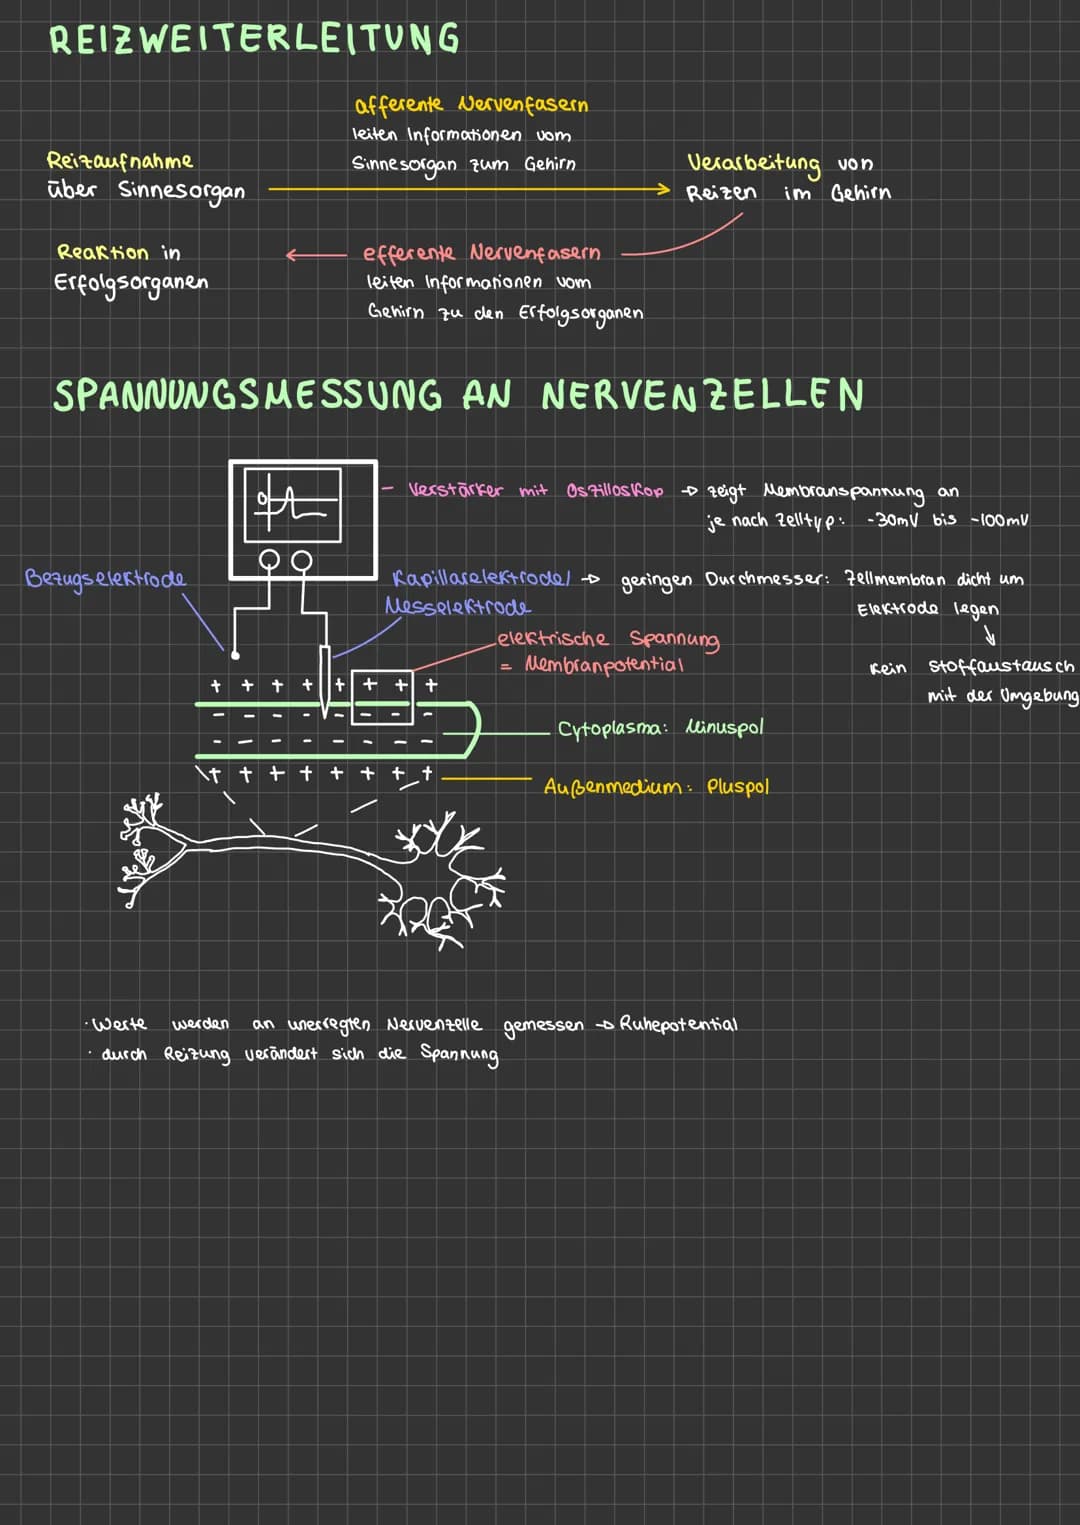 REIZWEITERLEITUNG
afferente Nervenfasern
leiten Informationen vom
Sinnesorgan zum Gehirn
Reizaufnahme
über Sinnesorgan
Verarbeitung von
Reizen im Gehirn
Reaktion in
Erfolgsorganen
efferente Nervenfasern
leiten Informationen vom
Gehirn zu den Erfolgsorganen
SPANNUNGSMESSUNG AN NERVENZELLEN
- Verstärker mit Oszilloskop → zeigt Membranspannung an
je nach Zelltyp: -30mV bis -100mV
0
Bezugselektrode
Kapillarelektrode/ → geringen Durchmesser: Zellmembran dicht um
Messelektrode
Elektrode legen
↓
elektrische Spannung
= Membranpotential
kein Stoffaustausch
mit der Umgebung
+ + + + + + + +
- - - - - - - -
- - - - - - - -
+ + + + + + + +
Cytoplasma: Minuspol
Außenmedium: Pluspol
· Werte werden an unerregten Nervenzelle gemessen → Ruhepotential
· durch Reizung verändert sich die Spannung